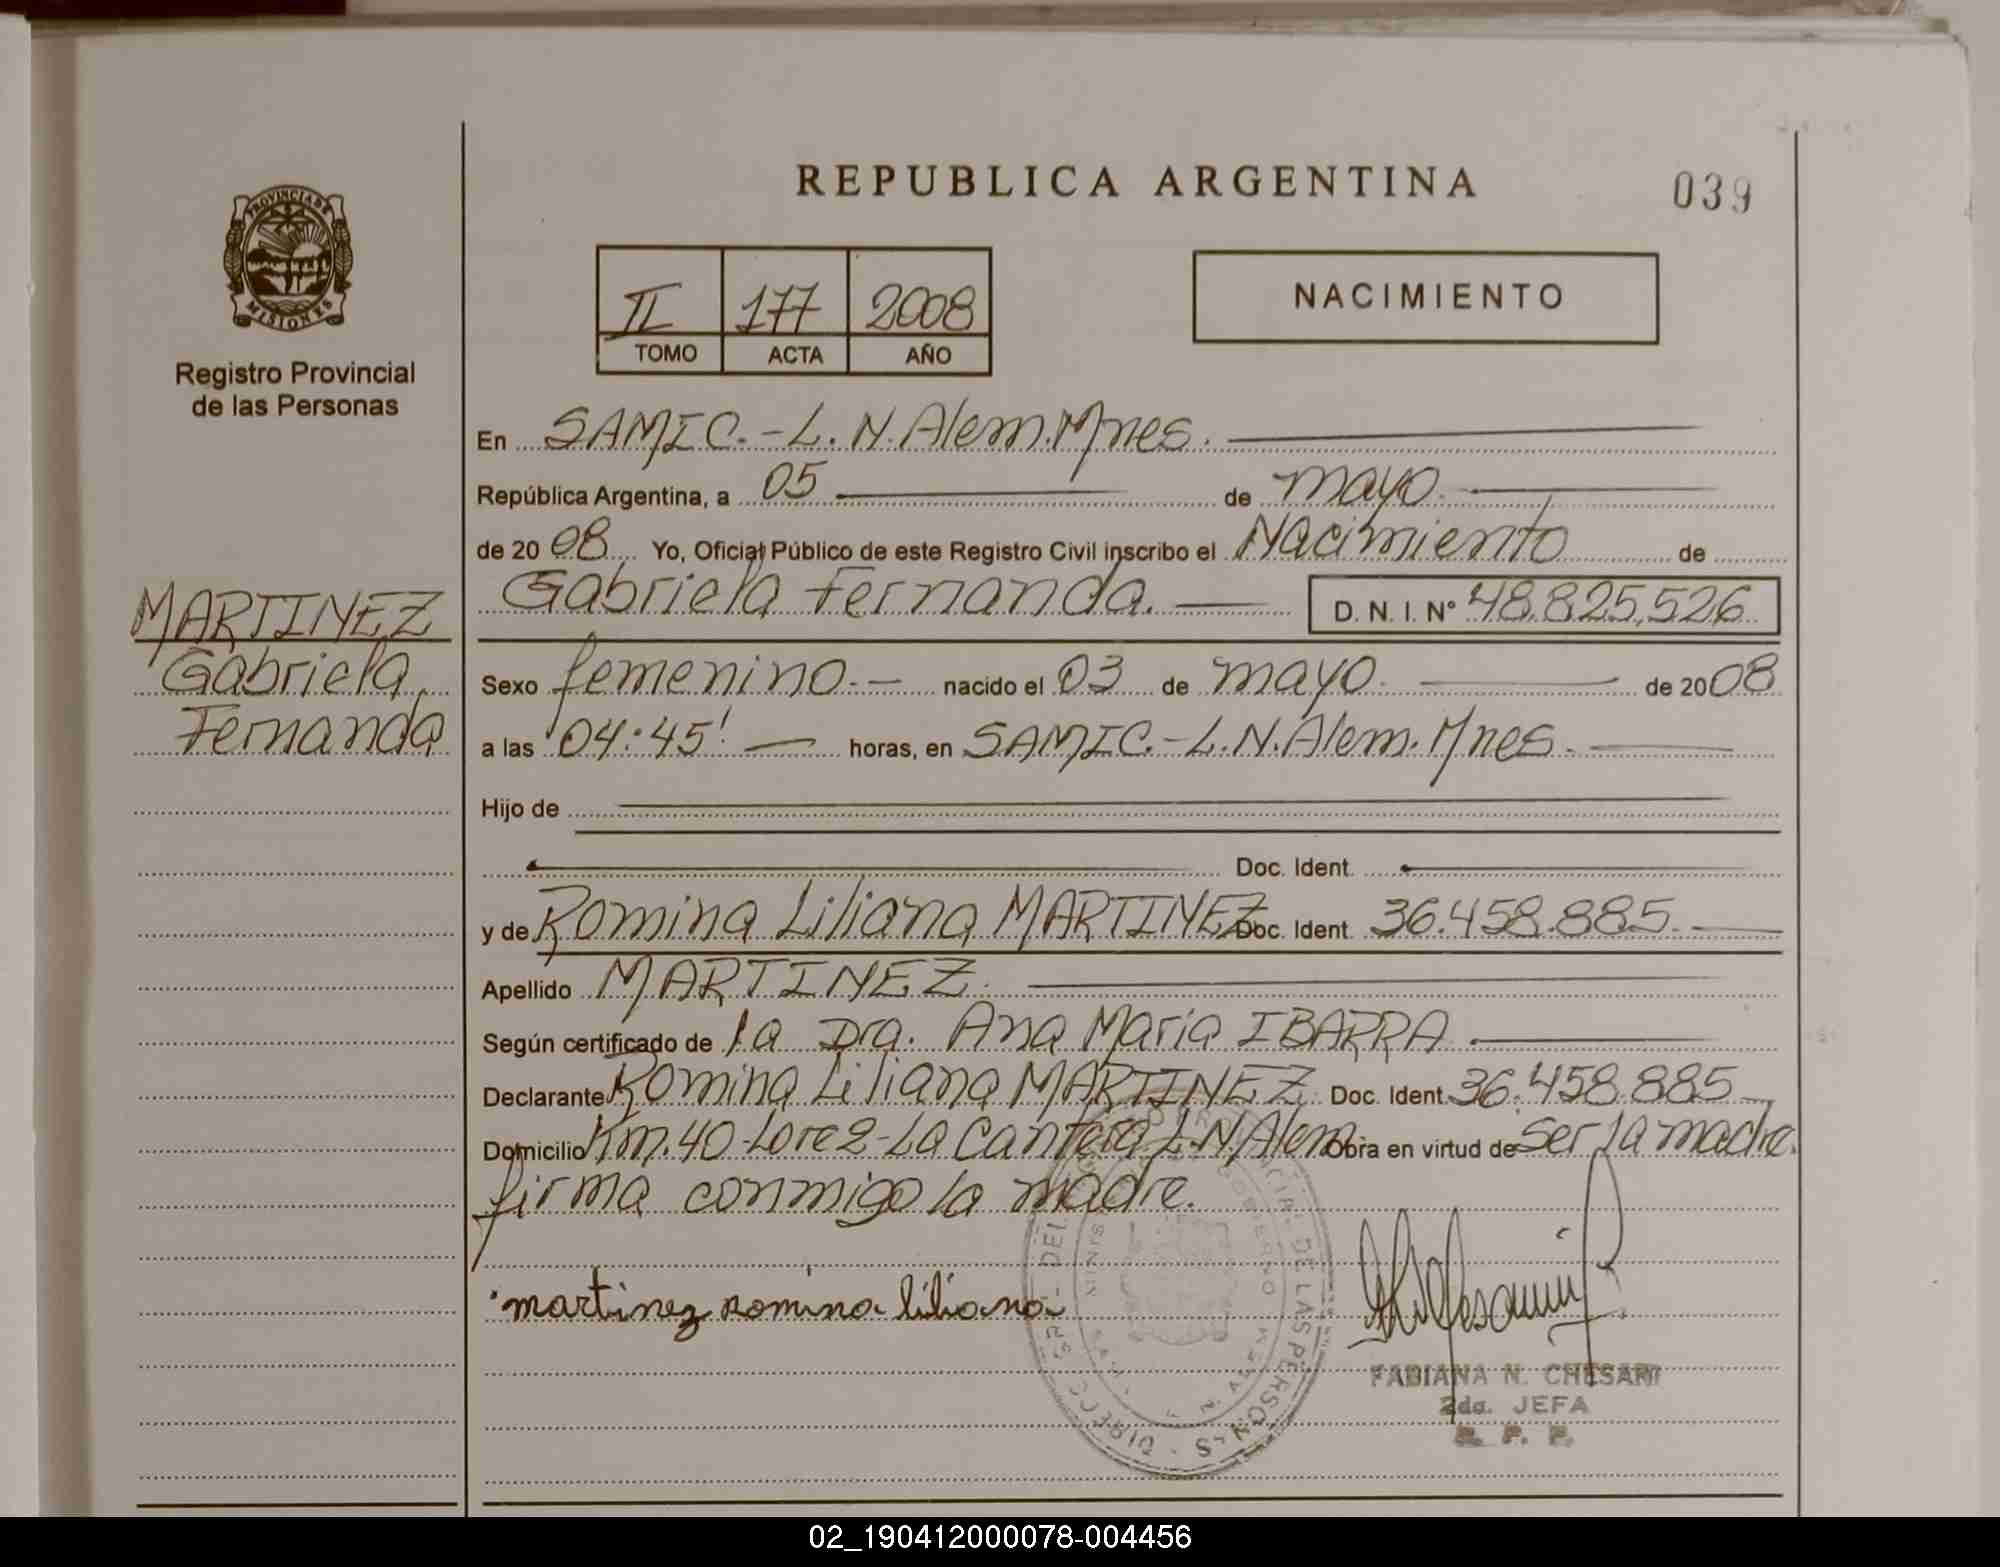 REPUBLICA ARGENTINA
039
PROVINCIA DE
MISIONES
Registro Provincial
de las Personas
II 177 2008
TOMO ACTA AÑO
NACIMIENTO
En SAMIC.-L.N.Alem.Mnes.
República Argentina, a 05 de mayo.
de 2008 Yo, Oficial Público de este Registro Civil inscribo el Nacimiento de
Gabriela Fernanda. D. N. I. N° 48.825.526
MARTINEZ
Gabriela
Fernanda
Sexo femenino.- nacido el 03 de mayo. de 2008
a las 04:45' horas, en SAMIC.-L.N.Alem.Mnes.
Hijo de
Doc. Ident.
y de Romina Liliana MARTINEZ Doc. Ident. 36.458.885.
Apellido MARTINEZ.
Según certificado de la Dra. Ana Maria IBARRA
Declarante Romina Liliana MARTINEZ. Doc. Ident. 36.458.885
Domicilio Km.40-Lote 2-La Cantera L.N.Alem Obra en virtud de ser la madre.
firma conmigo la madre.
martinez romina liliana
FABIANA N. CHESANI
2da. JEFA
R. P. P.
02_190412000078-004456